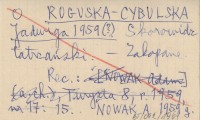 O ROGUSKA-CYBULSKA
Jadwiga 1959(?) Skorowidz
tatrzański - Zakopane
Rec.: NOWAK Adam
Turysta 8, p. 1959
nr 17: 15. NOWAK A, 1959